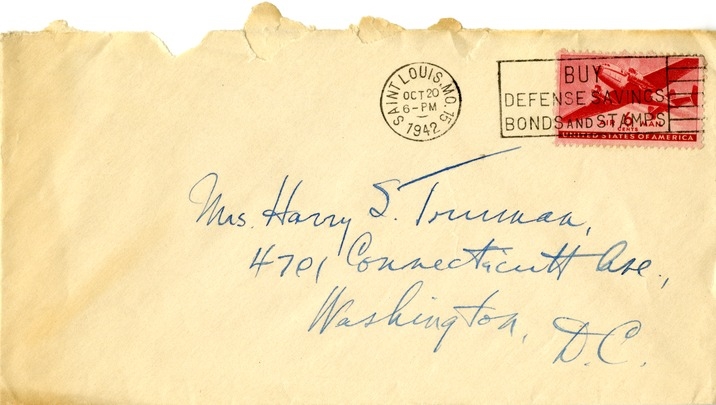 SAINT LOUIS, MO. 15
OCT 20
6-PM
1942
BUY
DEFENSE SAVINGS
BONDS AND STAMPS
AIR 6 MAIL
CENTS
UNITED STATES OF AMERICA
Mrs. Harry S. Truman,
4701 Connecticutt Ave.,
Washington, D.C.